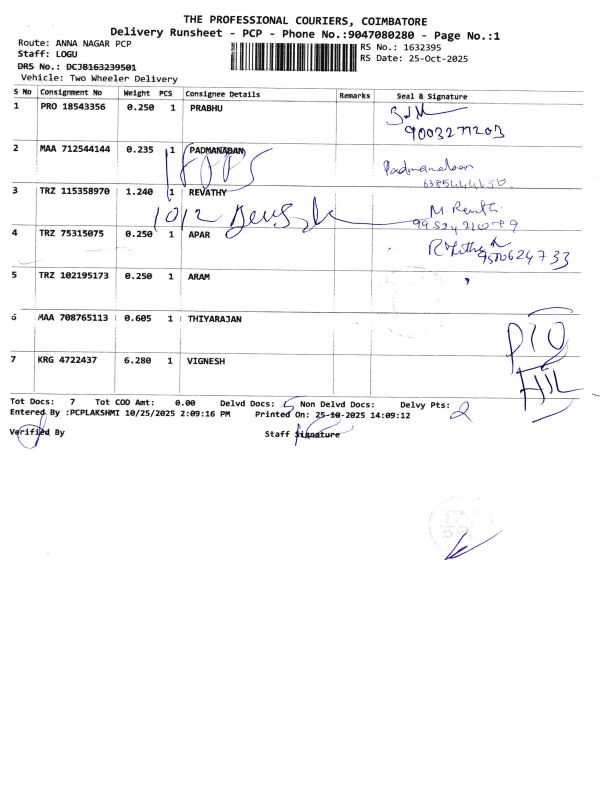 THE PROFESSIONAL COURIERS, COIMBATORE
Delivery Runsheet - PCP - Phone No.:9047080280 - Page No.:1
Route: ANNA NAGAR PCP
RS No.: 1632395
Staff: LOGU
RS Date: 25-Oct-2025
DRS No.: DCJB163239501
Vehicle: Two Wheeler Delivery
S No Consignment No Weight PCS Consignee Details Remarks Seal & Signature
1 PRO 18543356 0.250 1 PRABHU
9003277203
2 MAA 712544144 0.235 1 PADMANABAN
Padmanaban
3 TRZ 115358970 1.240 1 REVATHY
1012
4 TRZ 75315075 0.250 1 APAR
9500624733
5 TRZ 102195173 0.250 1 ARAM
6 MAA 708765113 0.605 1 THIYARAJAN
7 KRG 4722437 6.280 1 VIGNESH
Tot Docs: 7 Tot COD Amt: 0.00 Delvd Docs: 5 Non Delvd Docs: Delvy Pts: 2
Entered By :PCPLAKSHMI 10/25/2025 2:09:16 PM Printed On: 25-10-2025 14:09:12
Verified By Staff Signature